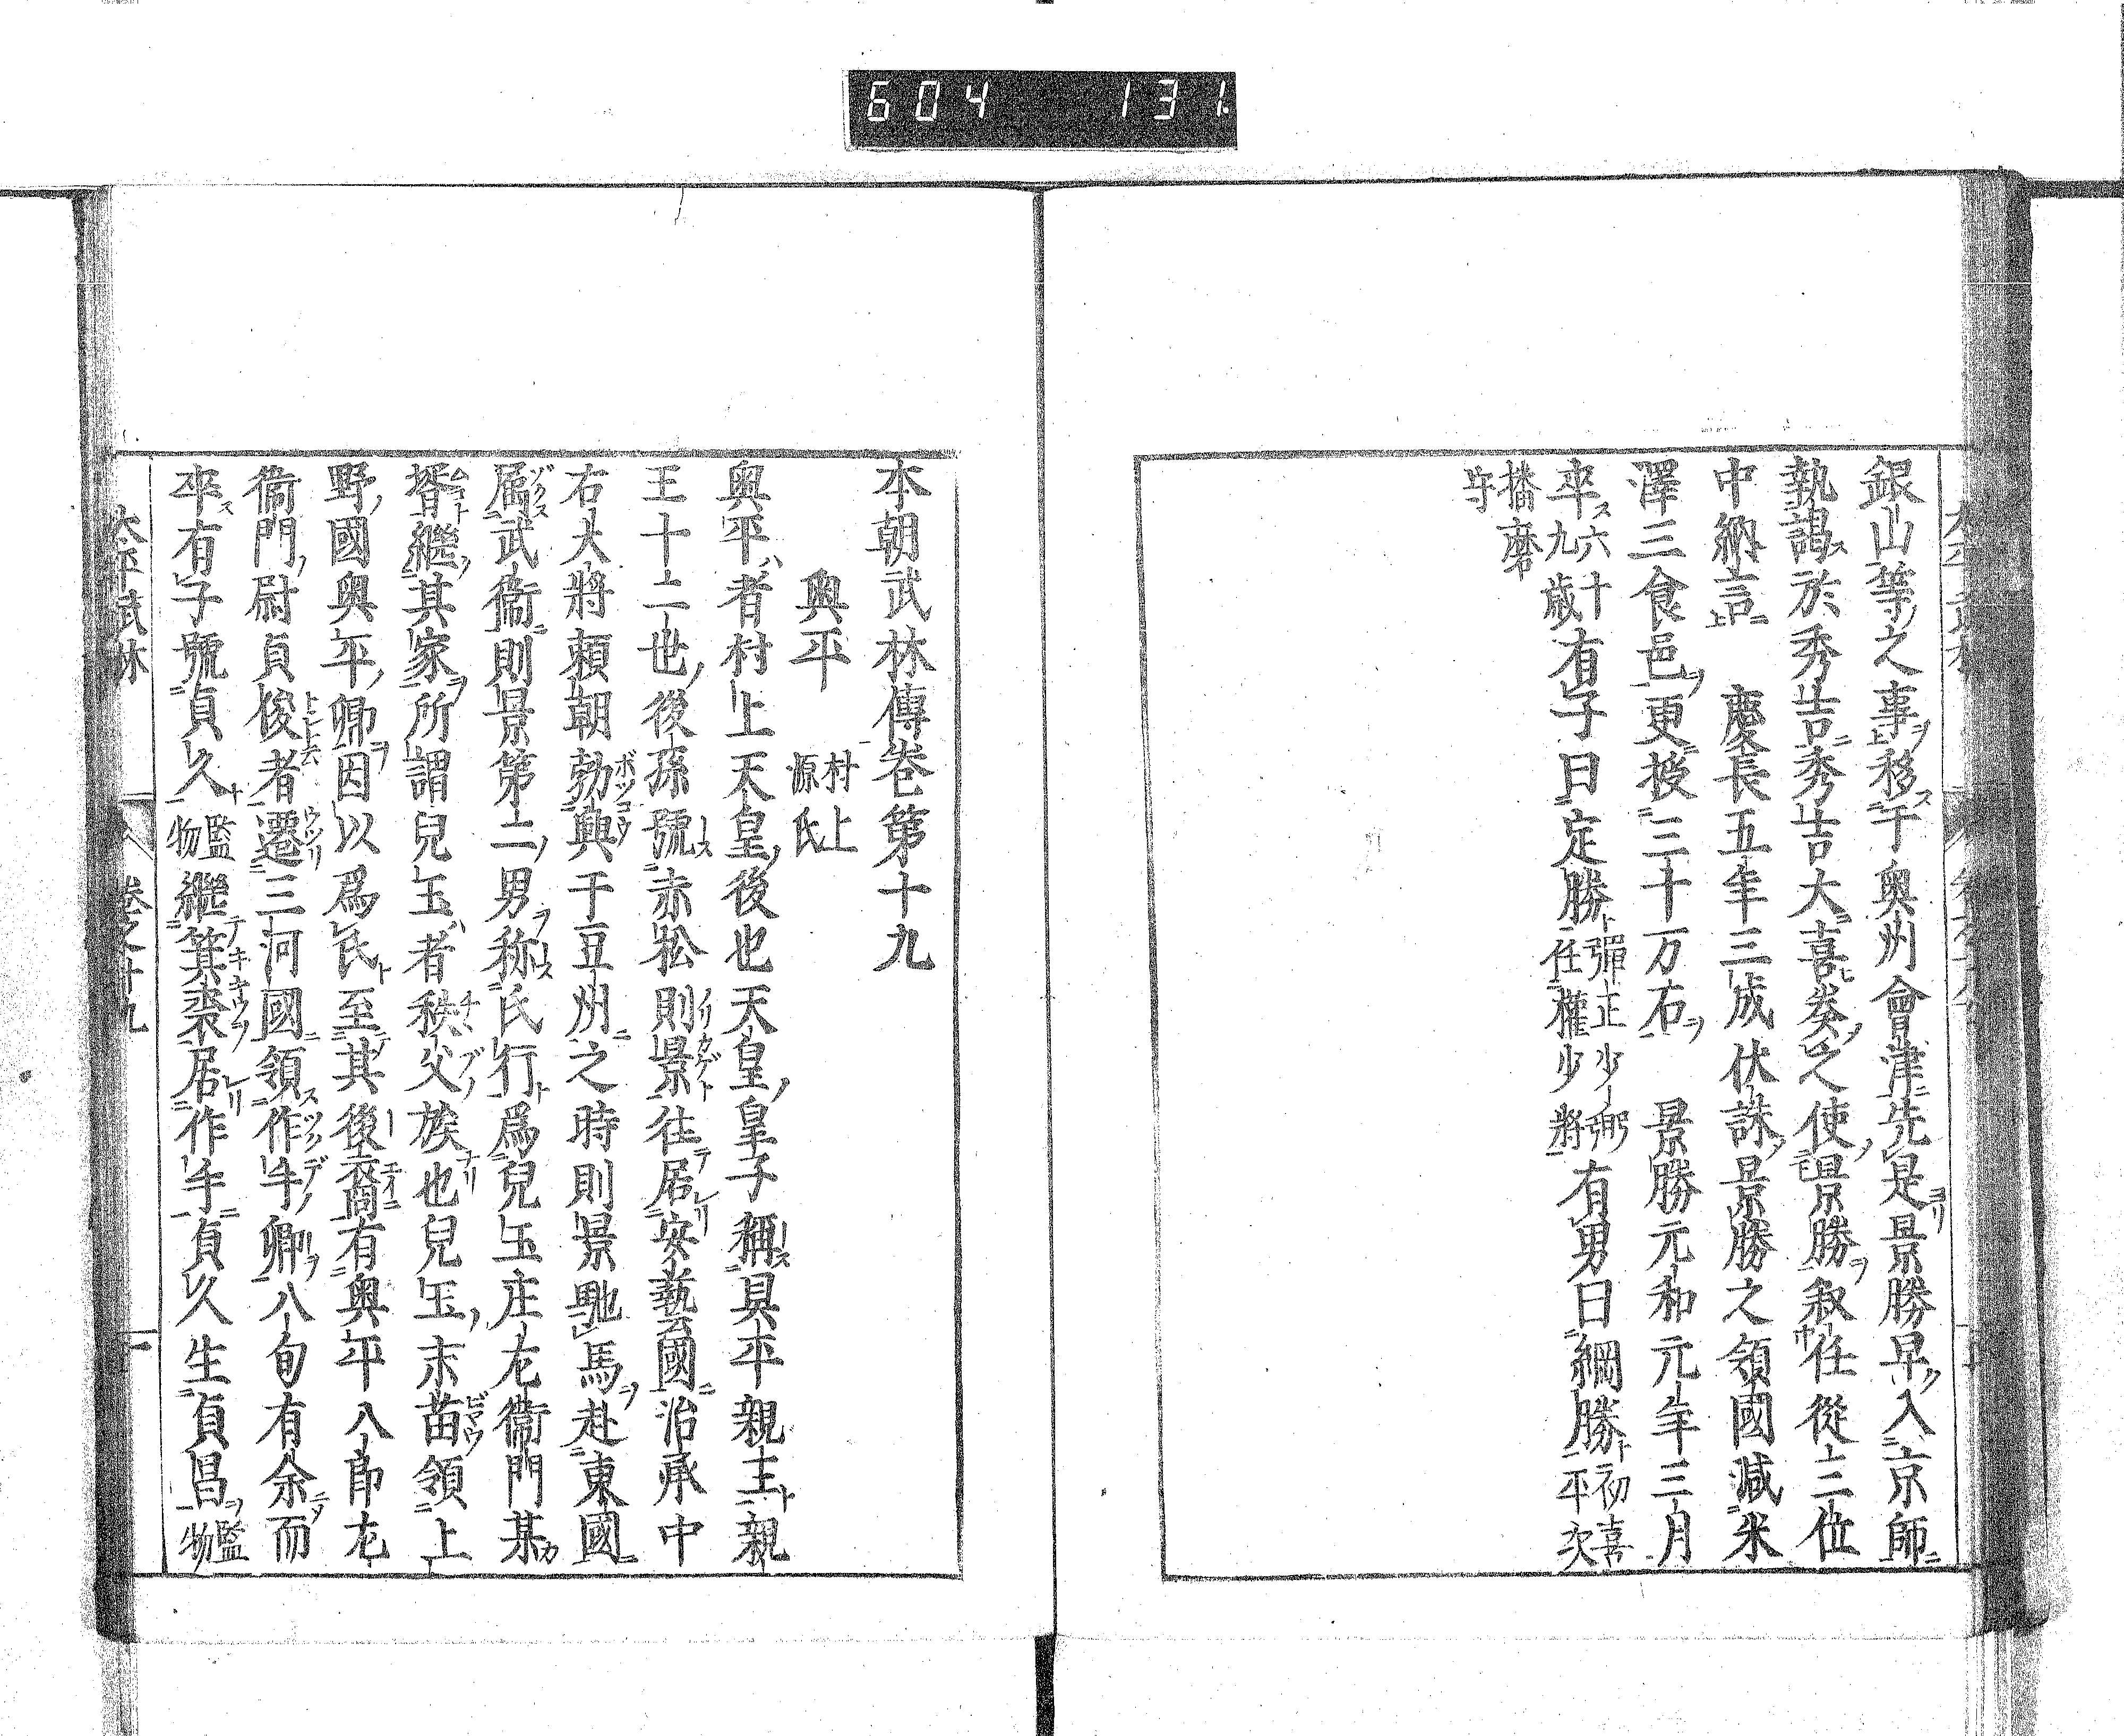 604 131
銀山等之事移于奧州會津先是景勝早入京師
執謁於秀吉秀吉大喜奏之使景勝叙任從三位
中納言 慶長五年三成伏誅景勝之領國減米
澤三食邑更授三十万石 景勝元和元年三月
卒六十九歳有子曰定勝彈正少弼任權少將有男曰綱勝初喜平次
播磨守
本朝武林傳卷第十九
奧平 村上源氏
奧平者村上天皇後也天皇皇子稱具平親王親
王十二世後孫號赤松則景往居安藝國治承中
右大將賴朝勃興于豆州之時則景馳馬赴東國
屬武衞則景第二男称氏行爲兒玉庄左衞門某
壻繼其家所謂兒玉者秩父族也兒玉末苗領上
野國奧平卿因以爲氏至其後裔有奧平八郎左
衞門尉貞俊者遷三河國領作手卿八旬有余而
卒有子號貞久監物繼箕裘居作手貞久生貞昌監物
太平武林 卷之十九 一